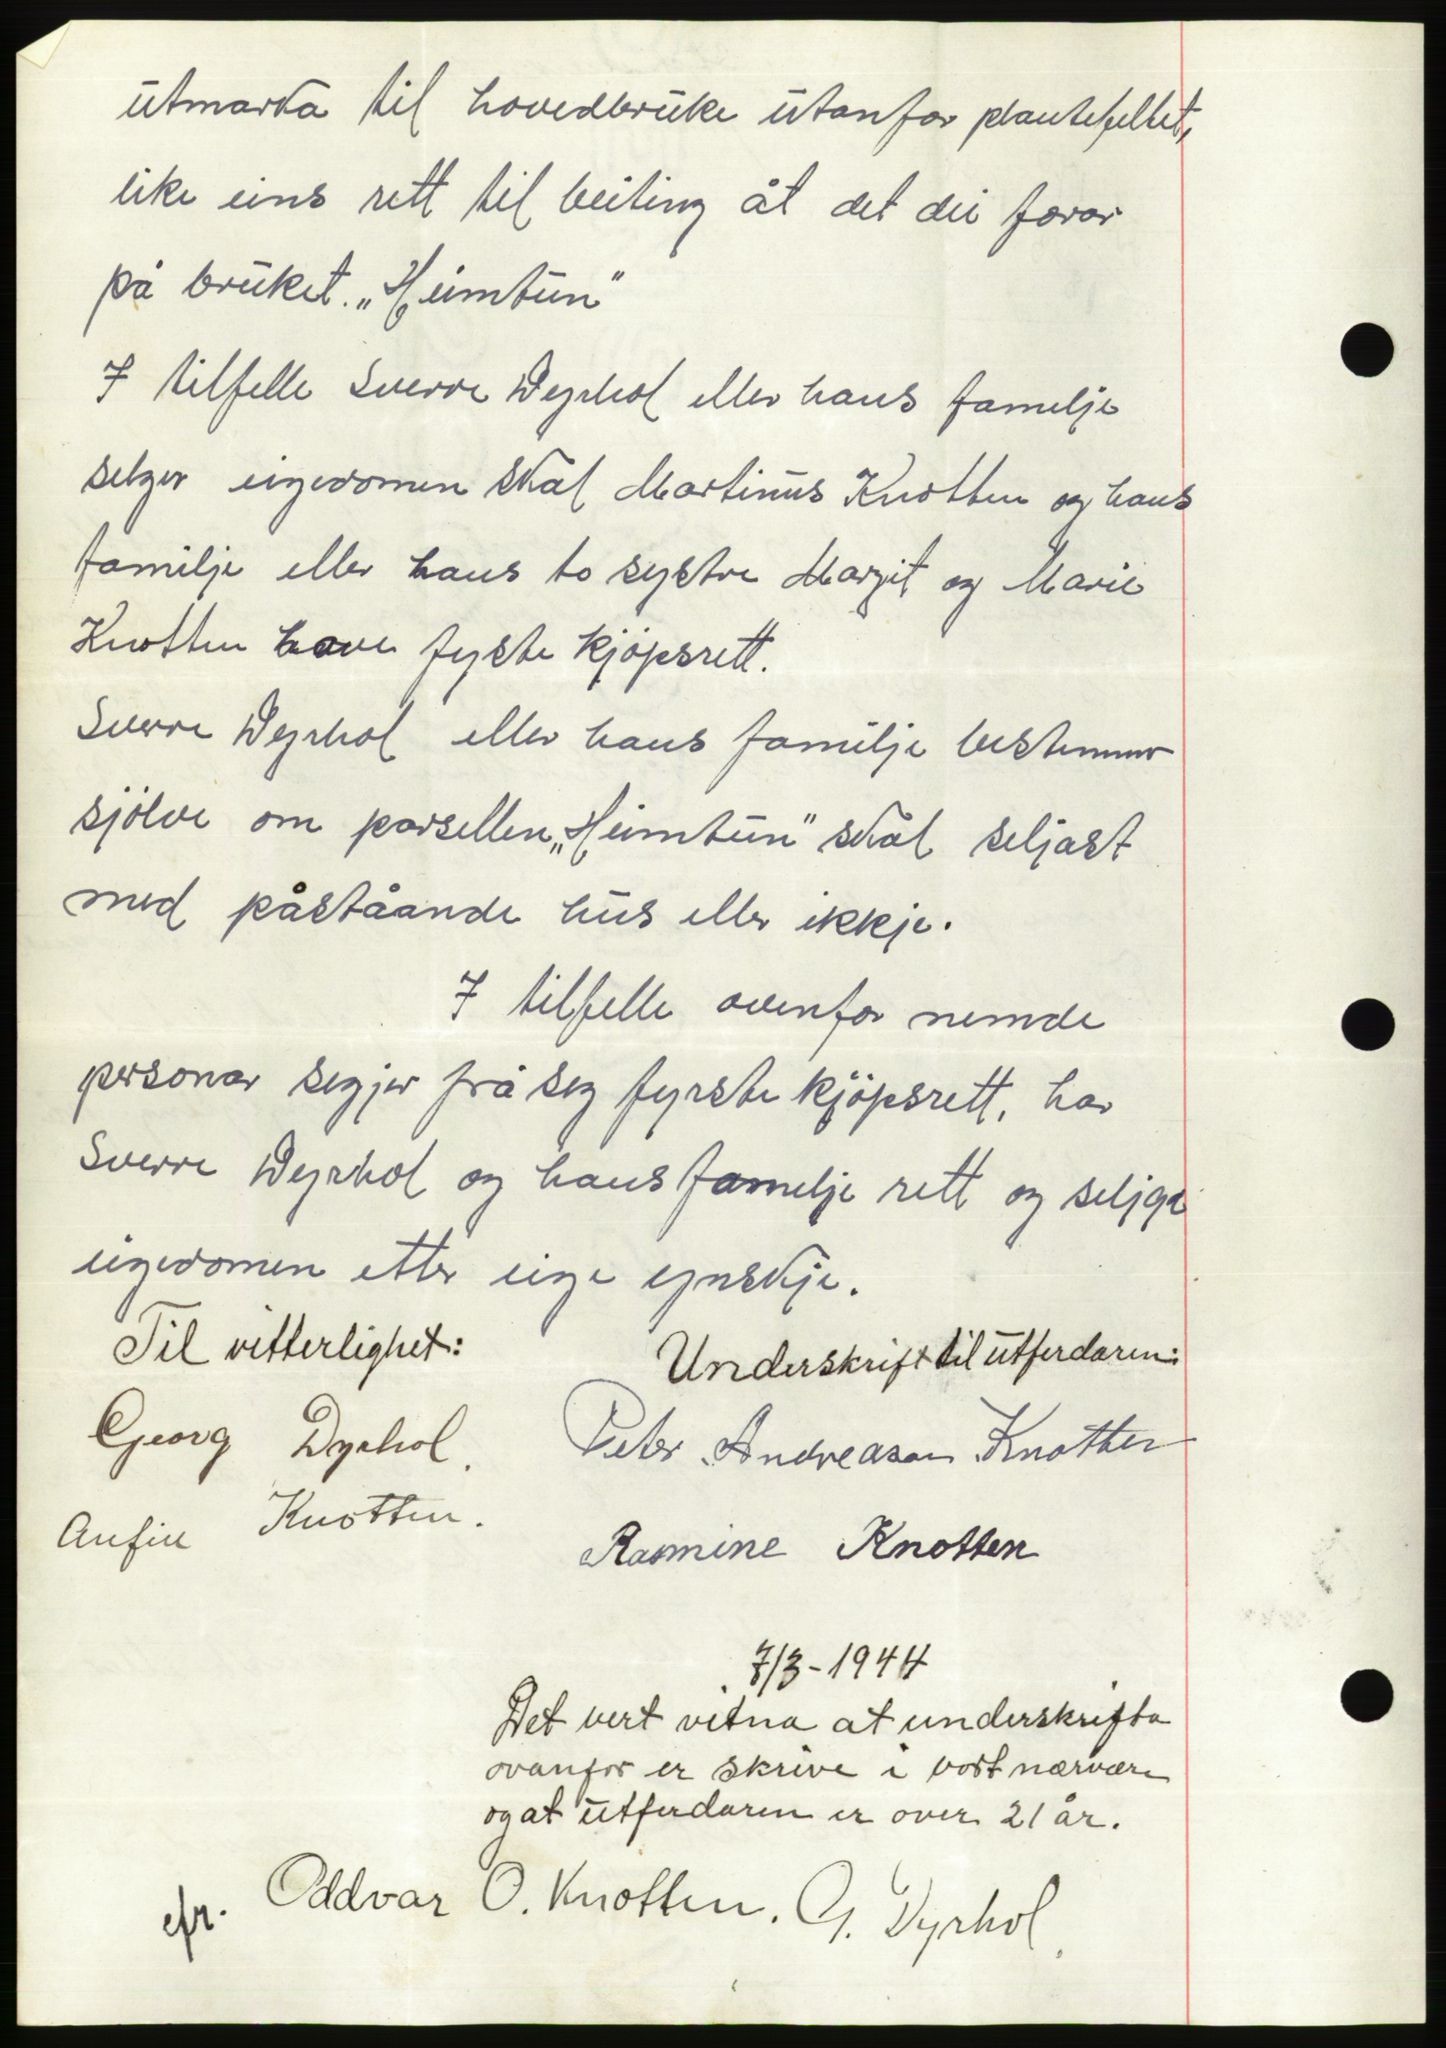 utmarka til hovedbruke utanfor plantefeltet,
like eins rett til beiting åt det dei forar
på bruket. „Heimtun"
I tilfelle Sverre Dyrhol eller hans familje
selger eigedomen skal Martinus Knotten og hans
familje eller hans to systre Margit og Marie
Knotten have fyste kjöpsrett.
Sverre Dyrhol eller hans familje bestemmer
sjölve om parsellen „Heimtun" skal seljast
med påståande hus eller ikkje.
I tilfelle ovenfor nemde
personar segjer frå seg fyrste kjöpsrett, har
Sverre Dyrhol og hans familje rett og selja
eigedomen etter eige ynskje.
Til vitterlighet: Underskrift til utferdaren:
Georg Dyrhol. Peter Andreasen Knotten
Anfin Knotten. Rasmine Knotten
7/3-1944
Det vert vitna at underskrifta
ovanfor er skrive i vort nærvære
og at utferdaren er over 21 år.
efr. Oddvar O. Knotten. G. Dyrhol.